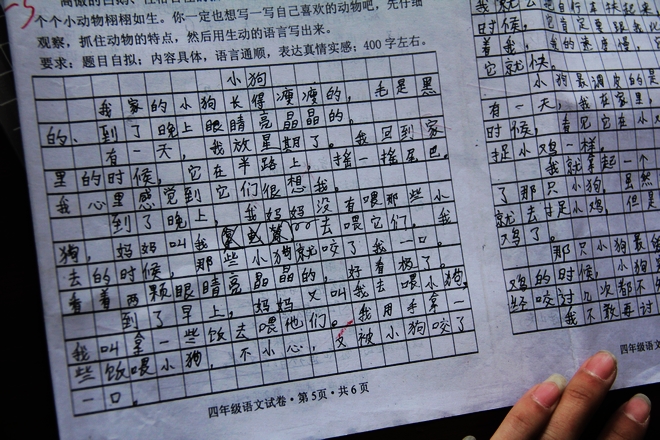 个个小动物栩栩如生。你一定也想写一写自己喜欢的动物吧，先仔细
观察，抓住动物的特点，然后用生动的语言写出来。
要求：题目自拟；内容具体，语言通顺，表达真情实感；400字左右。
小狗
我家的小狗长得瘦瘦的，毛是黑
的、到了晚上眼睛亮晶晶的。
有一天，我放星期了。我回到家
里的时候，它在半路上，摇一摇尾巴。
我心里感觉到它们很想我。
到了晚上，我妈妈没有喂那些小
狗，妈妈叫我去喂它们，我
去的时候，那些小狗就咬了我一口。
看着两颗眼睛亮晶晶的，好看极了。
到了早上，妈妈又叫我去喂小狗，
我叫拿一些饭去喂他们。我用手拿一
些饭喂小狗，不小心，又被小狗咬了
一口。
四年级语文试卷·第5页·共6页
时候，
着我，我的速度慢，
它就快。
小狗最调皮的是
有一天，我在家里，
时候，看见它在小
捉小鸡一样。
我就拿起一个
了那只小狗，虽然
就去捉小鸡，但是
鸡了。
那只小狗最
鸡的时候，小狗
经咬过几次都不
我不敢再讨
四年级语文